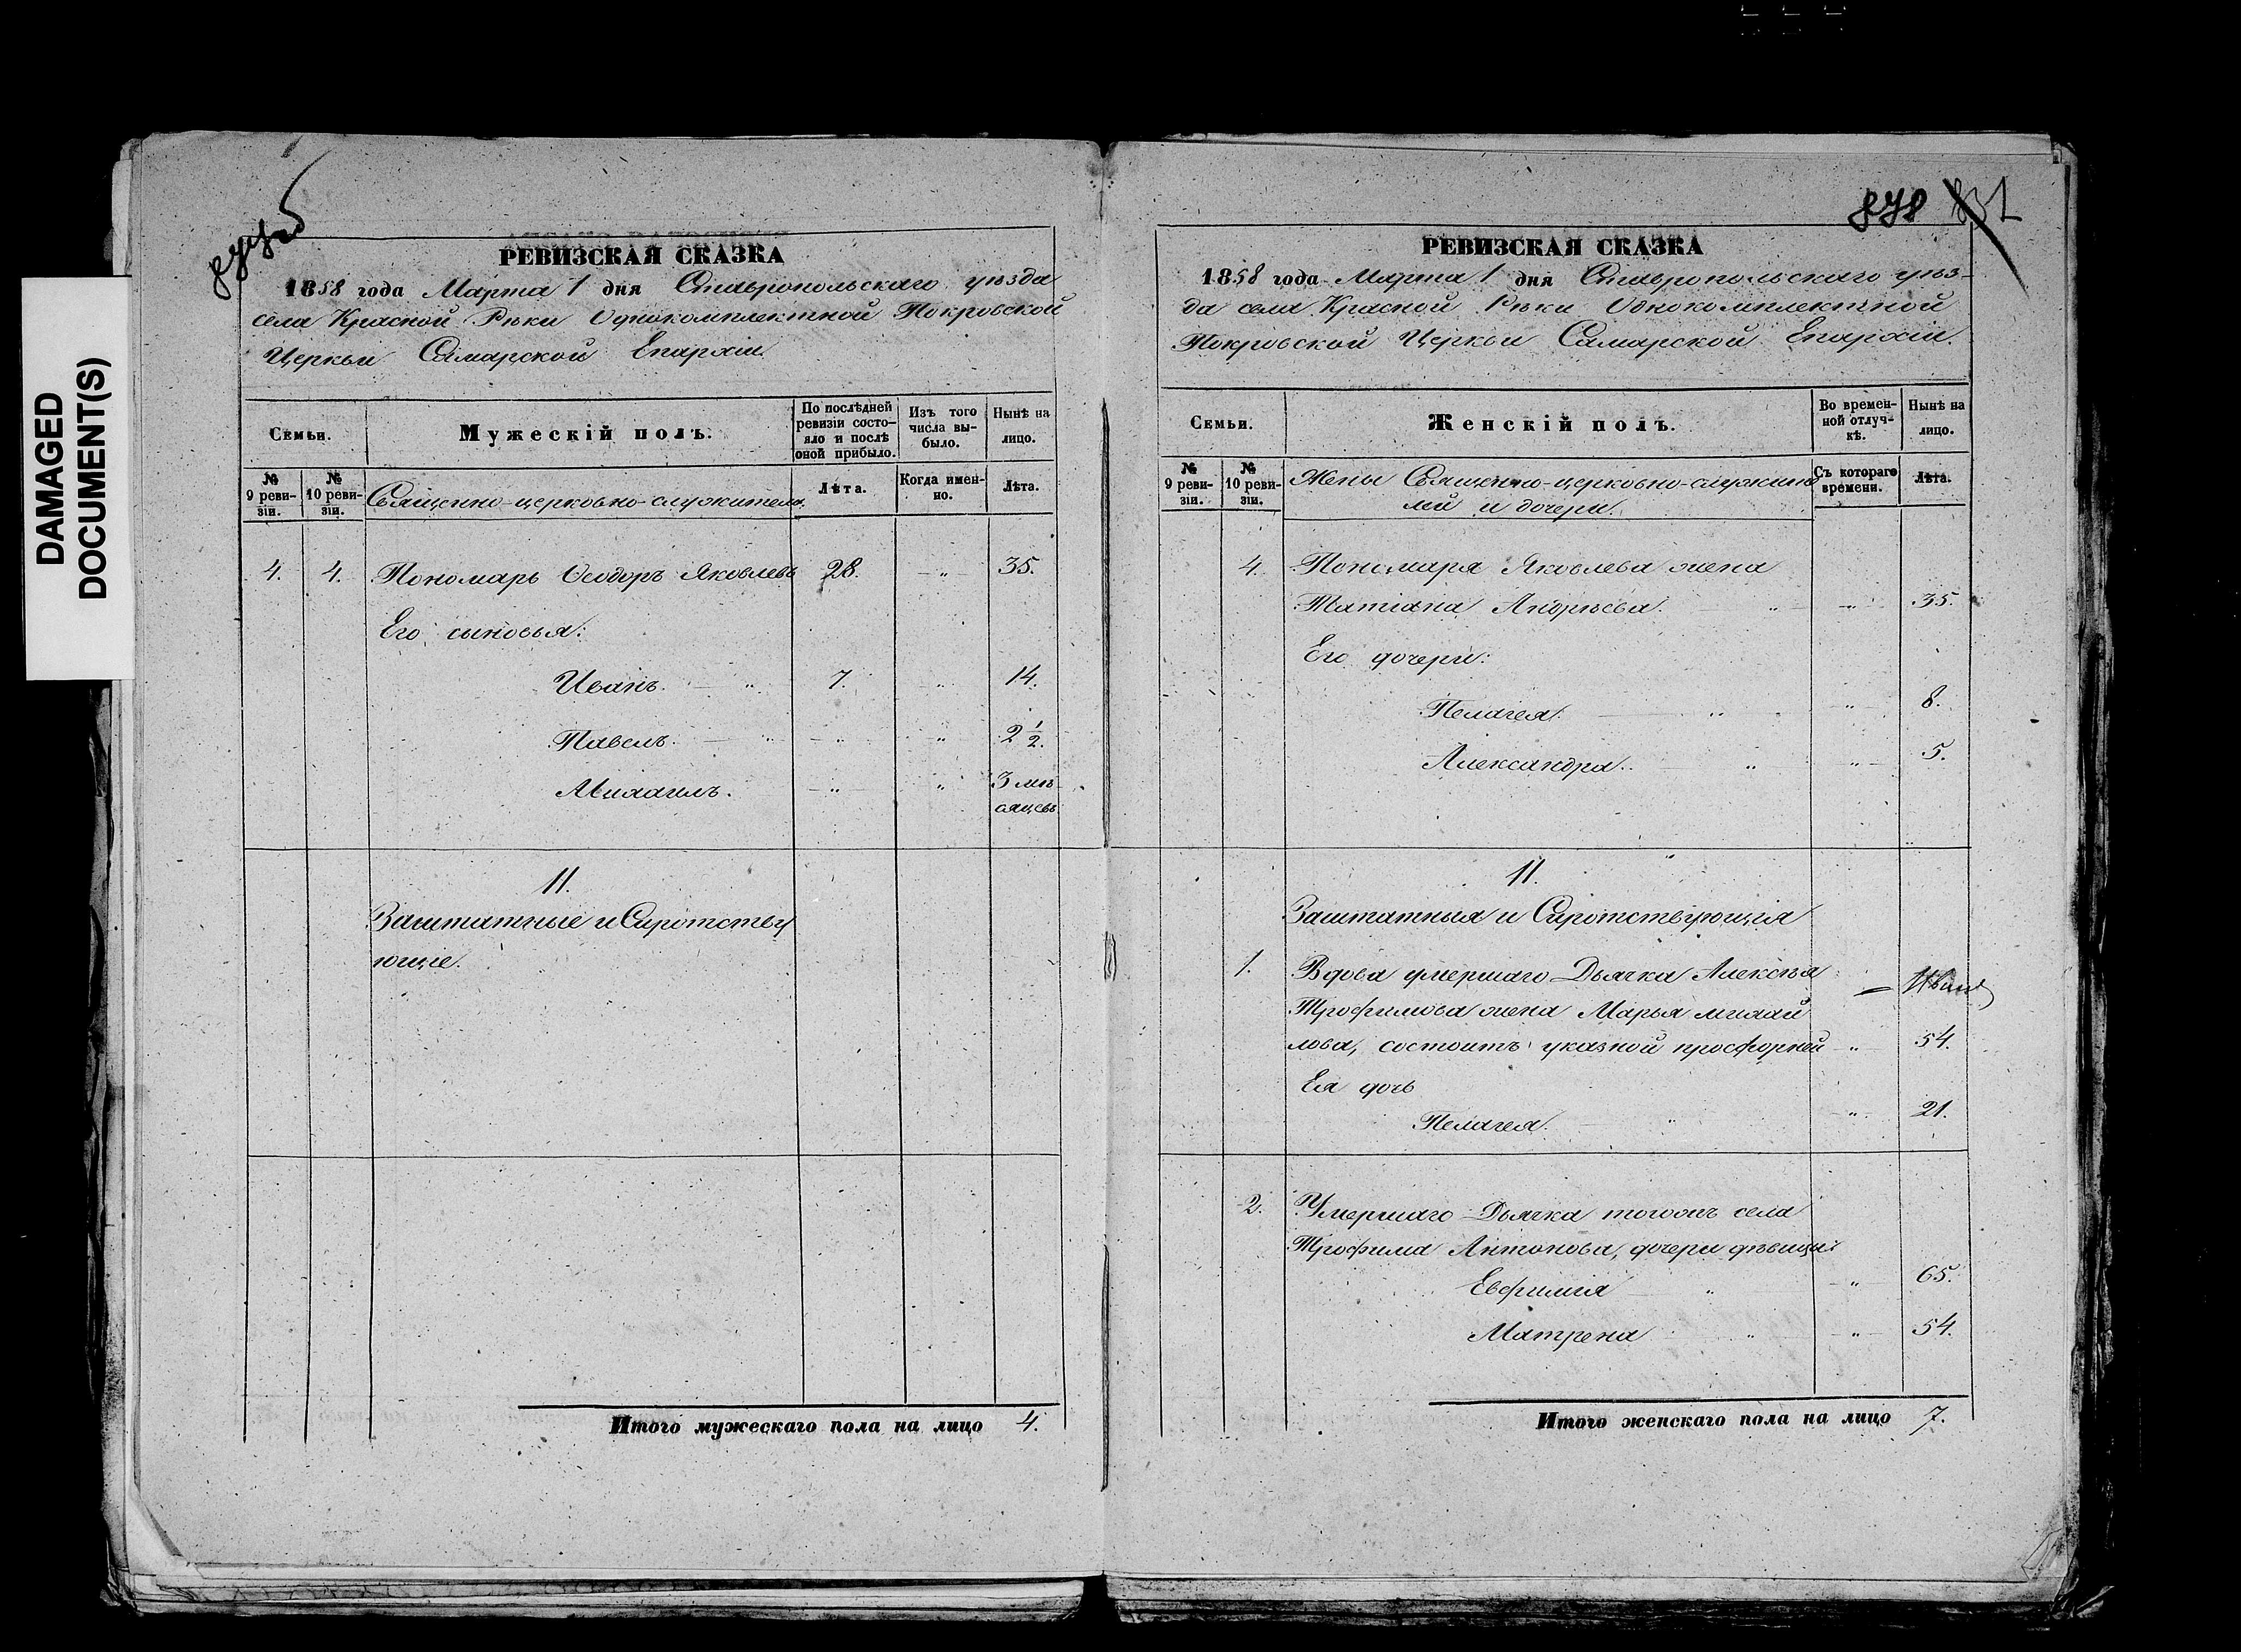 DAMAGED
DOCUMENT(S)
РЕВИЗСКАЯ СКАЗКА
1858 года Марта 1 дня Ставропольскаго уѣзда
села Красной Рѣки Однокомплектной Покровской
Церкви Самарской Епархіи.
Семьи.
Мужескій полъ.
По послѣдней ревизіи состояло и послѣ оной прибыло.
Изъ того числа выбыло.
Нынѣ на лицо.
№ 9 ревизіи.
№ 10 ревизіи.
Священно-церковно-служители.
Лѣта.
Когда именно.
Лѣта.
4. 4. Пономарь Ѳеодоръ Яковлевъ 28. — " — 35.
Его сыновья:
Иванъ. — " 7. — " 14.
Павелъ. — " — " " 2 1/2.
Михаилъ. — " " 3 мѣ-
сяцевъ
II.
Заштатные и Сиротству
ющіе.
Итого мужескаго пола на лицо 4.
878 831
РЕВИЗСКАЯ СКАЗКА
1858 года Марта 1 дня Ставропольскаго уѣз-
да села Красной Рѣки Однокомплектной
Покровской Церкви Самарской Епархіи.
Семьи.
Женскій полъ.
Во временной отлучкѣ.
Нынѣ на лицо.
№ 9 ревизіи.
№ 10 ревизіи.
Жены Священно-церковно-служите
лей и дочери.
Съ котораго времени.
Лѣта.
4. Пономаря Яковлева жена
Татіана Андрѣева. " — " — 35.
Его дочери:
Пелагея. — " — " 8.
Александра. — " — " — 5.
II.
Заштатныя и Сиротствующія
1. Вдова умершаго Дьячка Алексѣя
Трофимова жена Марья михай
лова, состоитъ указной просфорней — " — 54.
Ея дочь
Пелагея. — " — " 21.
2. Умершаго Дьячка тогожъ села
Трофима Антонова, дочери дѣвицы:
Евфимія — " — " 65.
Матрена " — " — 54.
Итого женскаго пола на лицо 7.